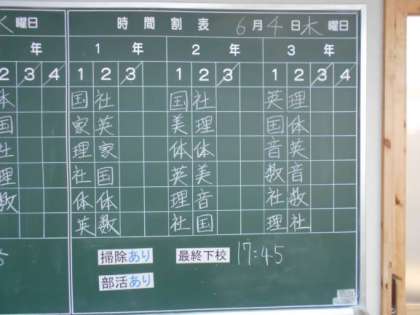 曜日 時間割表 6月4日木曜日
年 1年 2年 3年
2 3 4 1 2 3 1 2 3 1 2 3
国社 国社 英理
国 家英 美理 国体
社 理家 体体 音英
理 社国 英美 数音
数 体体 理音 社数
英数 社国 理社
掃除あり 最終下校 17:45
部活あり